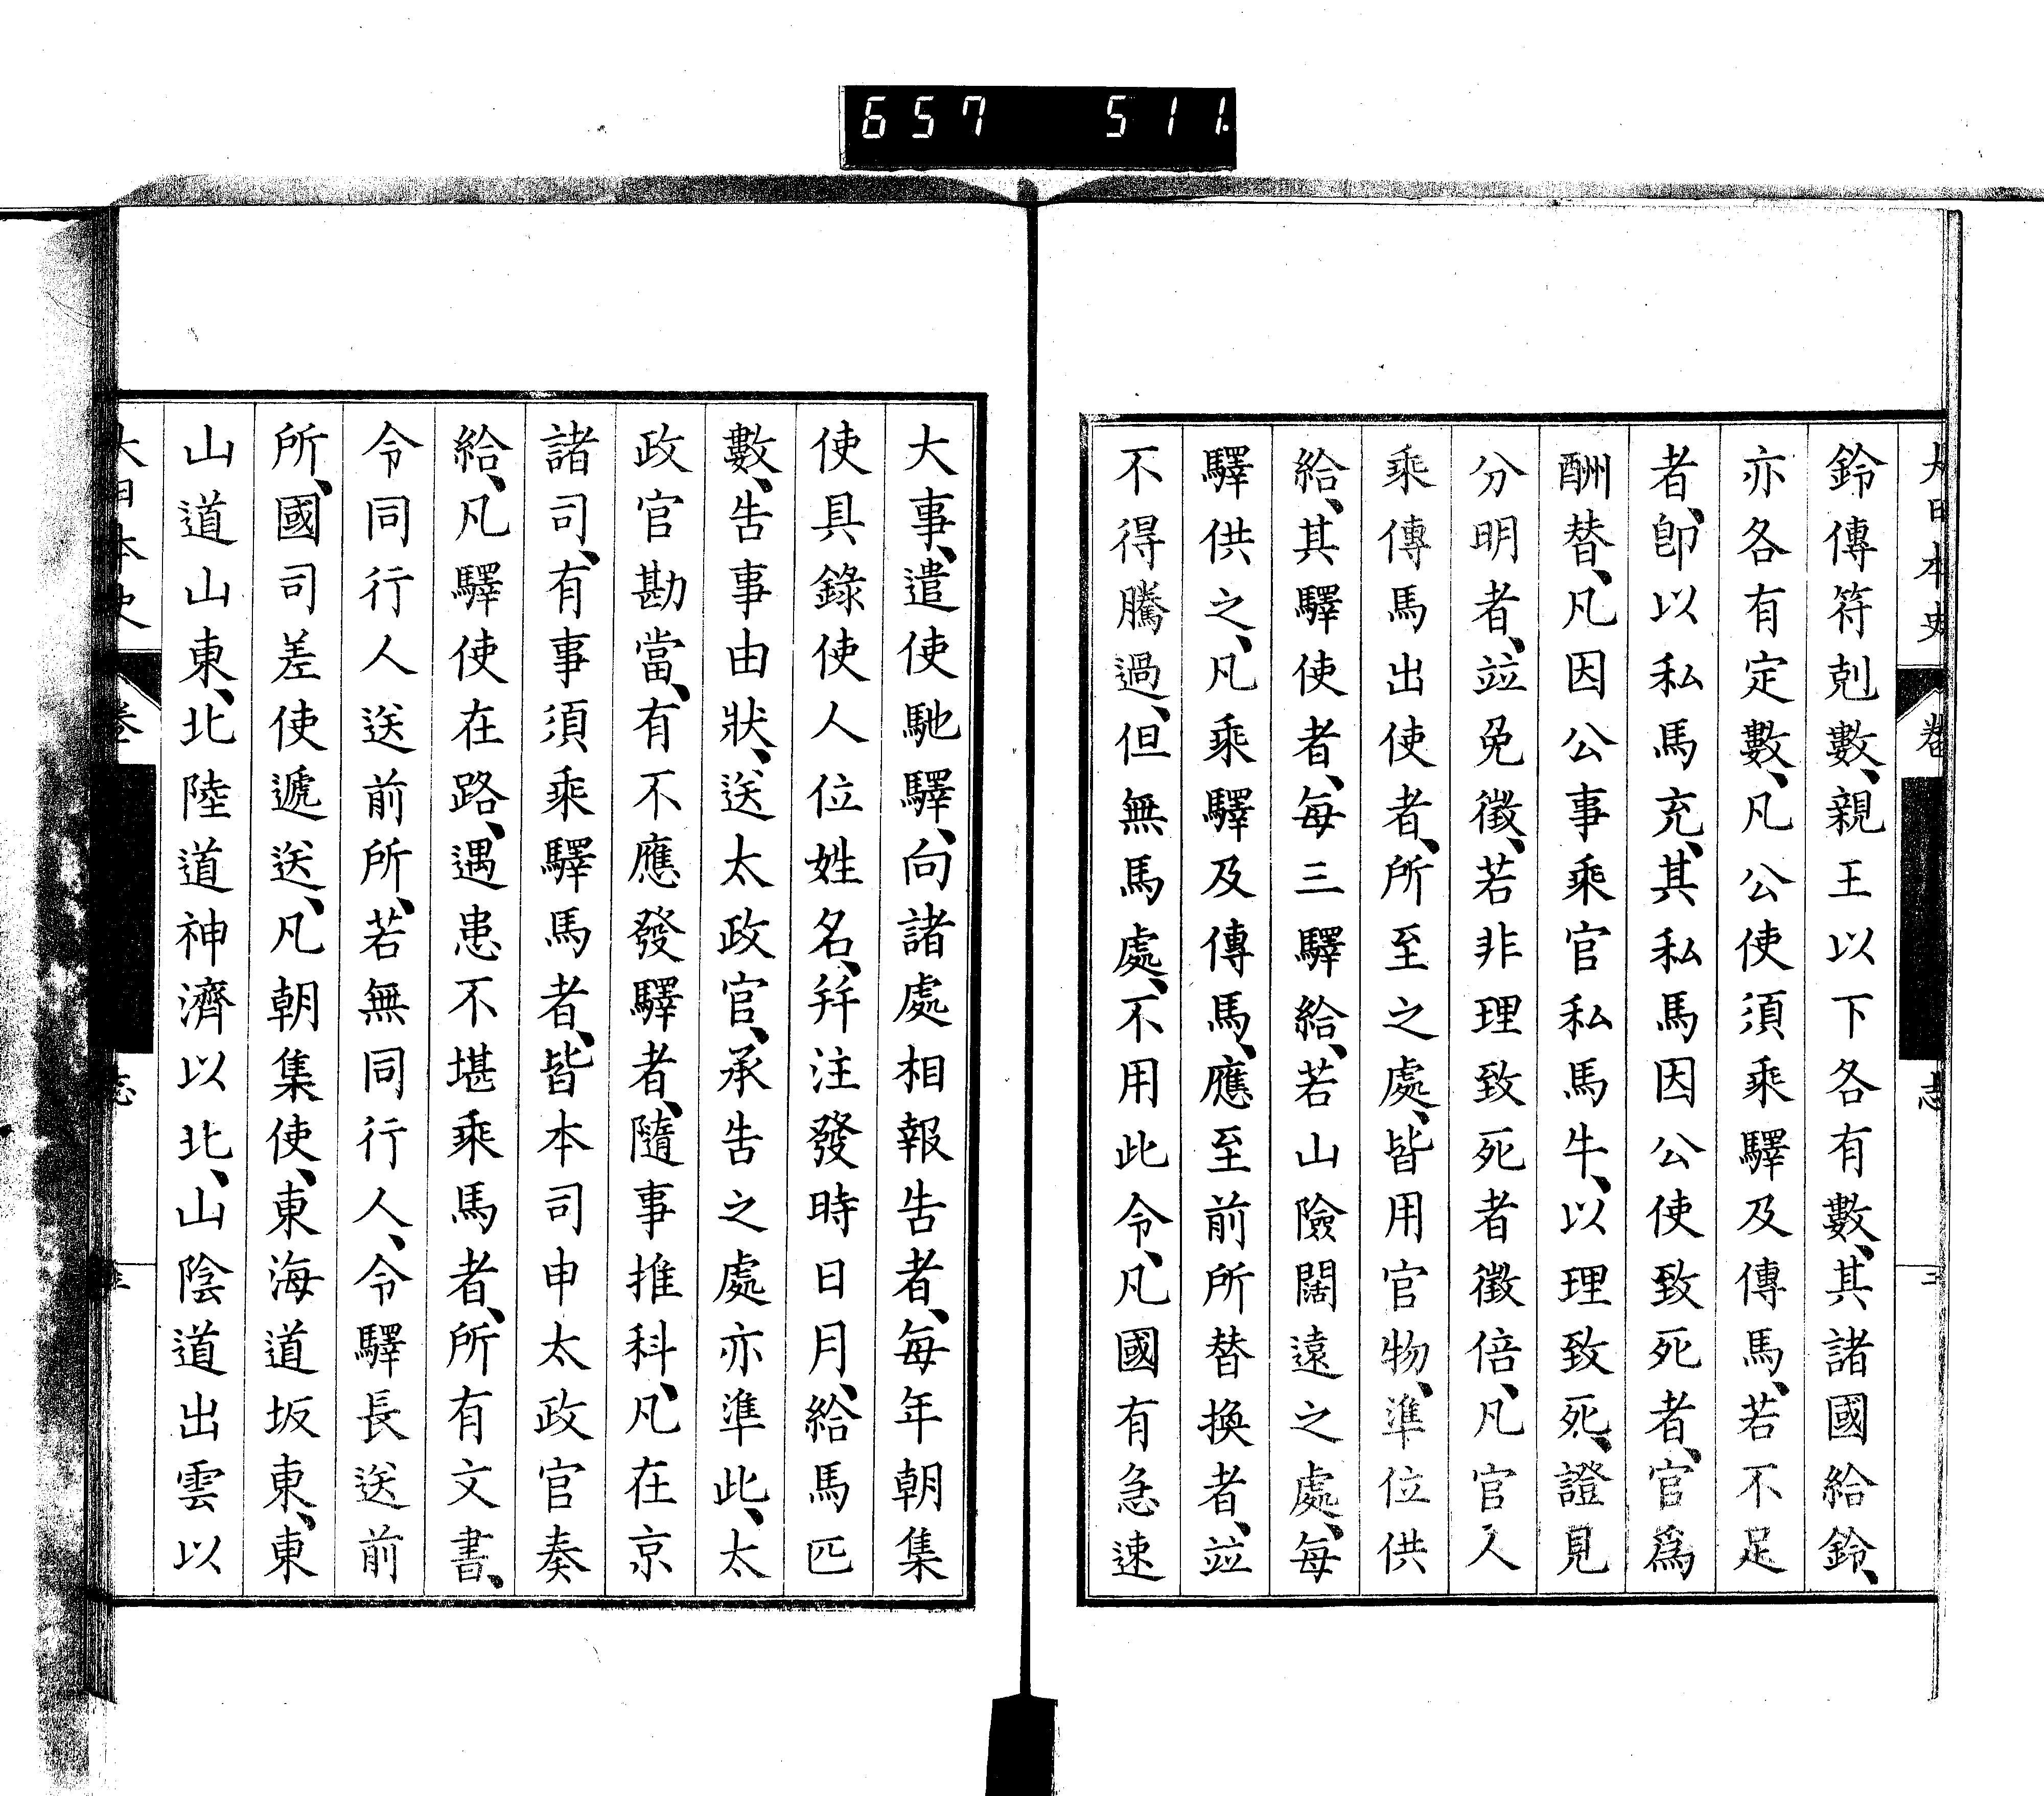 657 511
大日本史 卷 志 三
鈴傳符剋數、親王以下各有數、其諸國給鈴、
亦各有定數、凡公使須乘驛及傳馬、若不足
者、卽以私馬充、其私馬因公使致死者、官爲
酬替、凡因公事乘官私馬牛、以理致死、證見
分明者、竝免徵、若非理致死者徵倍、凡官人
乘傳馬出使者、所至之處、皆用官物、準位供
給、其驛使者、每三驛給、若山險闊遠之處、每
驛供之、凡乘驛及傳馬、應至前所替換者、竝
不得騰過、但無馬處、不用此令、凡國有急速
大事、遣使馳驛、向諸處相報告者、每年朝集
使具錄使人位姓名、幷注發時日月、給馬匹
數、告事由狀、送太政官、承告之處亦準此、太
政官勘當、有不應發驛者、隨事推科、凡在京
諸司、有事須乘驛馬者、皆本司申太政官奏
給、凡驛使在路、遇患不堪乘馬者、所有文書、
令同行人送前所、若無同行人、令驛長送前
所、國司差使遞送、凡朝集使、東海道坂東、東
山道山東、北陸道神濟以北、山陰道出雲以
大日本史 卷 志